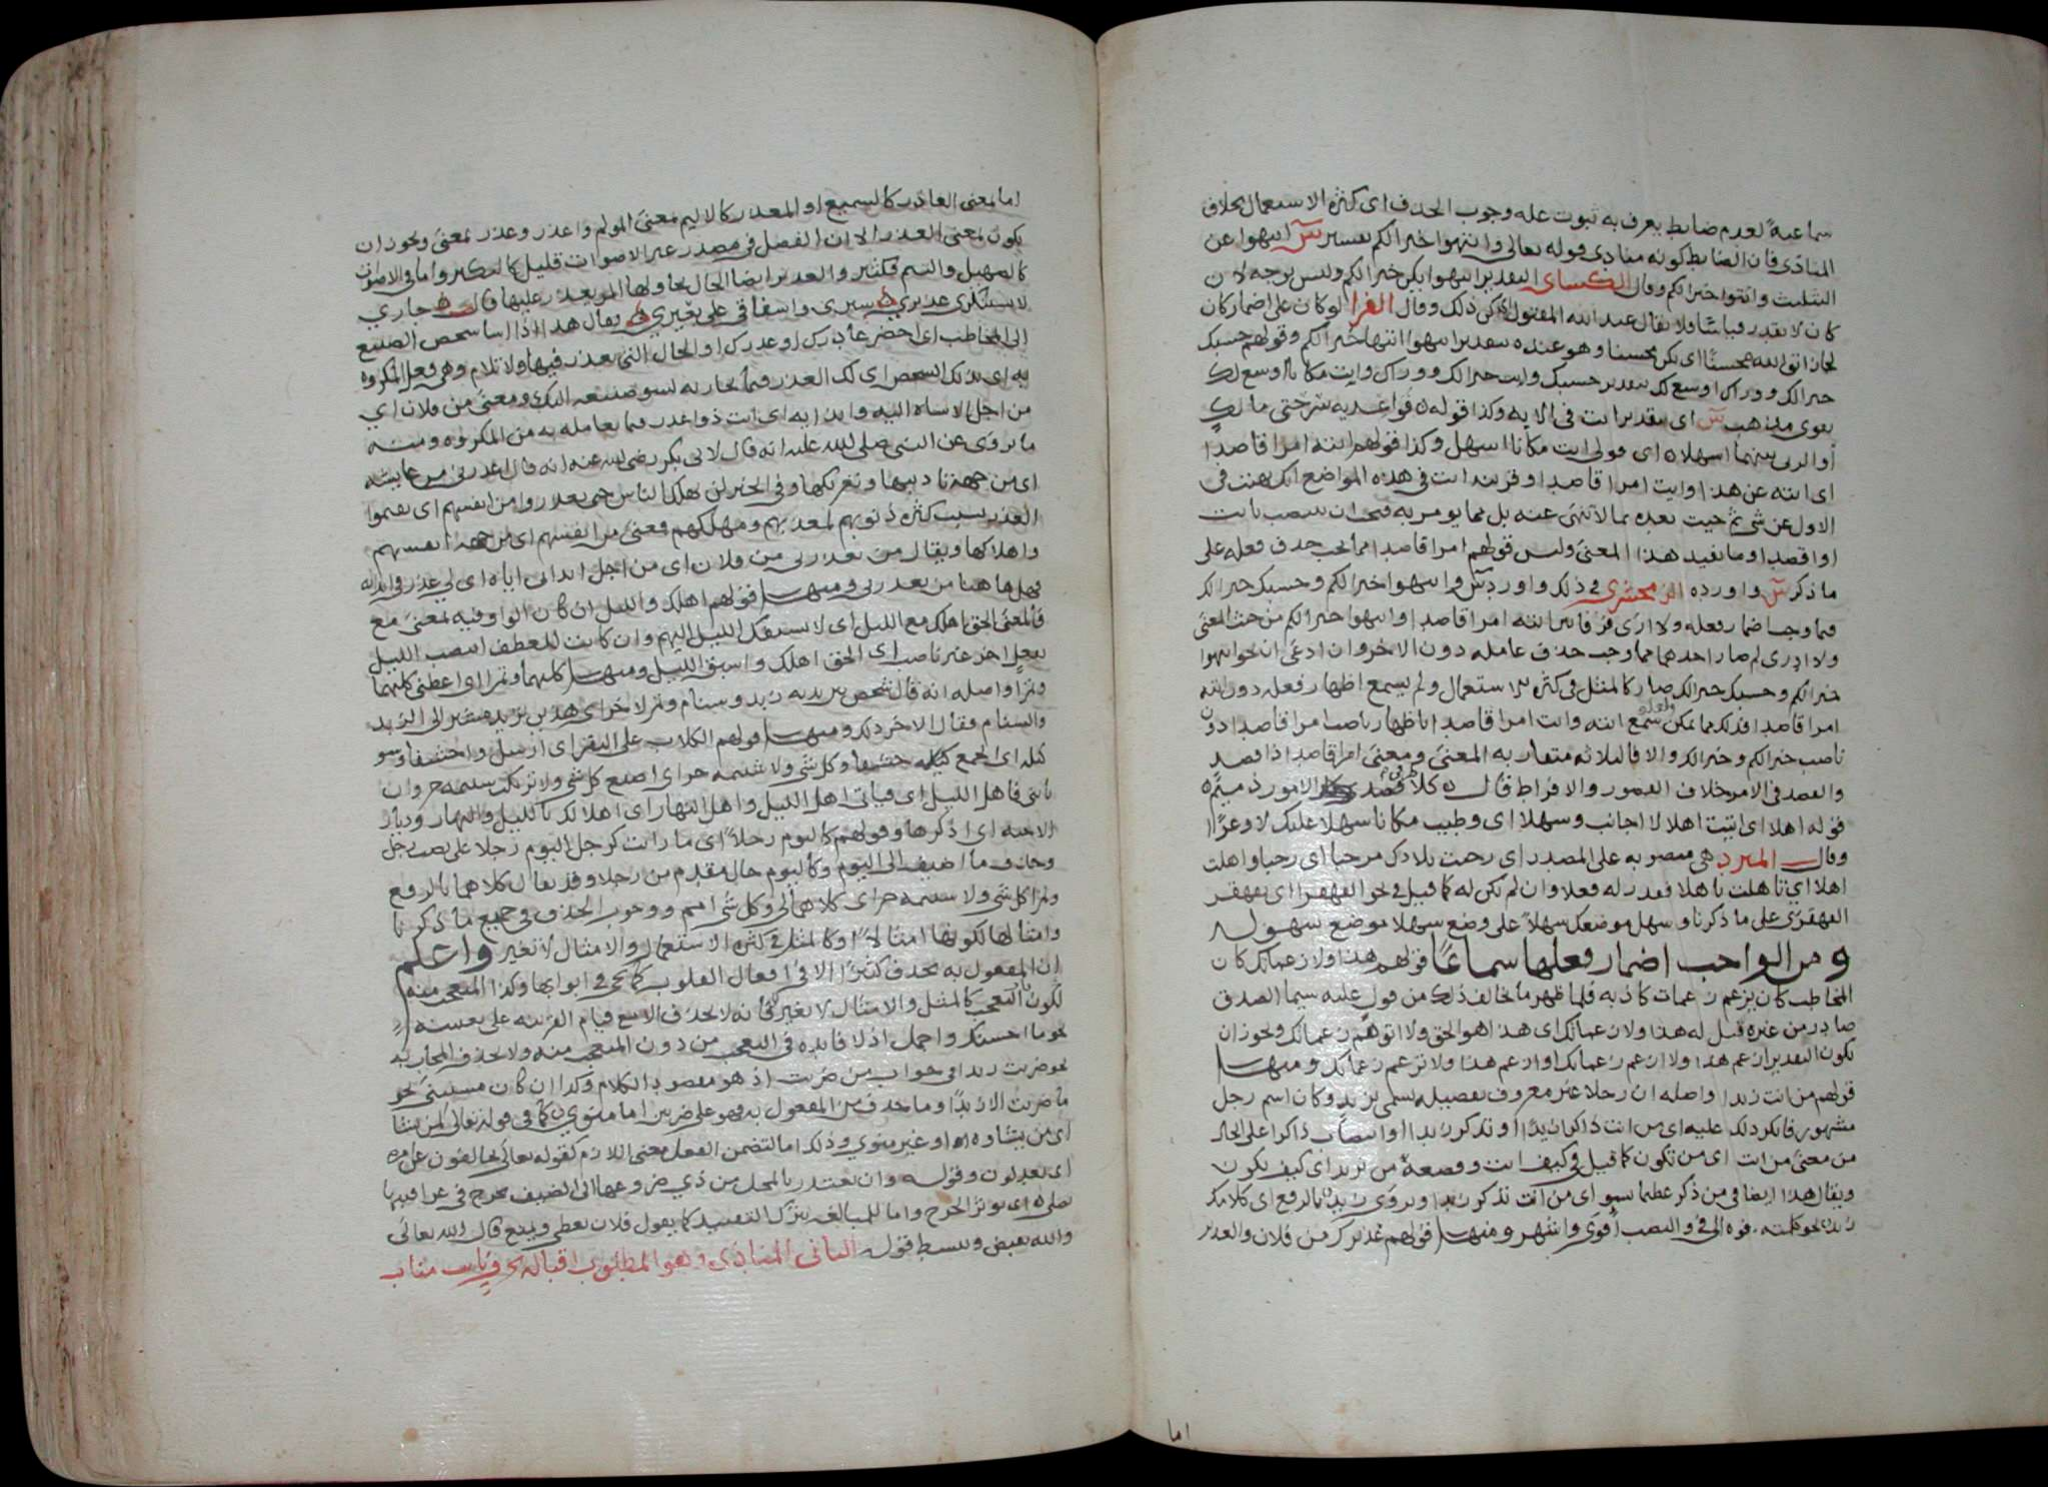 سماعية لعدم ضابط يعرف به ثبوت علة وجوب الحذف اى كثرة الاستعمال بخلاف
المنادى فان الضابط كونه منادى قوله تعالى وانتهوا خيرا لكم تفسير س انتهوا عن
التثليث وائتوا خيرا لكم وقال الكساى التقدير انتهوا يكن خيرا لكم وليس بوجه لان
كان لا يقدر قياسا فلا يقال عبد الله المقتول اى كن ذلك وقال الفرا لو كان على اضمار كان
لجاز اتق الله محسنا اى تكن محسنا وهو عنده بتقدير انتهوا انتهاء خيرا لكم وقولهم حسبك
خيرا لك ووراك اوسع لك بتقدير حسبك وايت خيرا لك ووراك وايت مكانا اوسع لك
يقوى مذهب س اى بتقدير ايت فى الاية وكذا قوله ه فواعديه سرحتى مالك
او الربى بينهما اسهلا ه اى قولى ايت مكانا اسهل وكذا قولهم انته امرا قاصدا
اى انته عن هذا وايت امرا قاصدا وقرينة ايت فى هذه المواضع انك نهيت فى
الاول عن شى ثم جيت بعده بما لا تنهى عنه بل مما يومر به فيجب ان ينتصب بايت
او اقصد او ما يفيد هذا المعنى وليس قولهم امرا قاصدا مما يجب حذف فعله على
ما ذكر س واورده الزمخشرى فى ذلك واورد س وانتهوا خيرا لكم وحسبك خيرا لك
فيما وجب اضمار فعله ولا ارى فرقا بين انته امرا قاصدا وانتهوا خيرا لكم من حيث المعنى
ولا ادرى لم صار احدهما مما وجب حذف عامله دون الاخر وان ادعى ان نحو انتهوا
خيرا لكم وحسبك خيرا لك صار كالمثل فى كثرة الاستعمال ولم يسمع اظهار فعله دون انته
امرا قاصدا فذلك مما يمكن ولعله سمع انته وايت امرا قاصدا باظهار ناصب امرا قاصدا دون
ناصب خيرا لكم وخيرا لك والا فالثلاثة متقاربة المعنى ومعنى امرا قاصدا ذا قصد
والقصد فى الامر خلاف القصور والافراط قال ه كلا طرفى قصد الامور ذميم ه
قوله اهلا اى اتيت اهلا لا اجانب وسهلا اى وطيت مكانا سهلا عليك لا وعرا
وقال المبرد هى منصوبة على المصدر اى رحبت بلادك مرحبا اى رحبا واهلت
اهلا اى تاهلت تاهلا فقدر له فعلا وان لم يكن له كما قيل فى نحو القهقرى اى تقهقر
القهقرى على ما ذكرنا وسهل موضعك سهلا على وضع سهلا موضع سهولة
ومن الواجب اضمار فعلها سماعا قولهم هذا ولا زعماتك كان
المخاطب كان يزعم زعمات كاذبة فلما ظهر ما يخالف ذلك من قول عليه سيما الصدق
صادر من غيره قيل له هذا ولا زعماتك اى هذا هو الحق ولا اتوهم زعماتك ويجوز ان
يكون التقدير ازعم هذا ولا ازعم زعماتك او ازعم هذا ولا تزعم زعماتك ومنها
قولهم من انت زيدا واصله ان رجلا غير معروف بفضيلة يسمى بزيد وكان اسم رجل
مشهور فانكر ذلك عليه اى من انت ذاكرا زيدا او تذكر زيدا وانتصاب ذاكرا على الحال
من معنى من انت اى من تكون كما قيل فى كيف انت وقصعة من ثريد اى كيف تكون
ويقال هذا ايضا فى من ذكر عظيما بسو اى من انت تذكر زيدا ويروى زيد بالرفع اى كلامك
زيد نحو كلمته فوه الى فى والنصب اقوى واشهر ومنها قولهم عذيرك من فلان والعذير
اما
اما بمعنى العاذر كالسميع او المعذر كالاليم بمعنى المولم واعذر وعذر بمعنى ويجوز ان
يكون بمعنى العذر الا ان الفعيل فى مصدر غير الاصوات قليل كالنكير واما فى الاصوات
كالصهيل والنئيم فكثير والعذير ايضا الحال يحاولها المرء يعذر عليها قال ه جارى
لا تستنكرى عذيرى ه سيرى واشفاقى على بعيرى ه ويقال هذا اذا اسا شخص الصنيع
الى المخاطب اى احضر عاذرك او عذرك او الحال التى تعذر فيها ولا تلام وهى فعل المكروه
به اى بذلك الشخص اى لك العذر فيما تجازيه لسو صنيعه اليك ومعنى من فلان اى
من اجل الاساة اليه وايذائه اى انت ذو اعذر فيما تعامله به من المكروه ومنه
ما يروى عن النبى صلى الله عليه انه قال لابى بكر رضى الله عنه انه قال اعذرنى من عايشة
اى من جهة تاديبها وتعريكها وفى الخبر لن يهلك الناس حتى يعذروا من انفسهم اى يقيموا
العذر بسبب كثرة ذنوبهم لمعذبهم ومهلكهم فمعنى من انفسهم اى من جهة انفسهم
واهلاكها ويقال من يعذرنى من فلان اى من اجل ايذائى اياه اى لى عذر فى ايذائه
فهل هاهنا من يعذرنى ومنها قولهم اهلك والليل ان كان الواو فيه بمعنى مع
فالمعنى الحق اهلك مع الليل اى لا يسبقك الليل اليهم وان كانت للعطف انتصب الليل
بفعل اخر غير ناصب اى الحق اهلك واسبق الليل ومنها كليهما وتمرا اى اعطنى كليهما
وتمرا واصله انه قال شخص بين يديه زبد وسنام وتمر لاخر اى هذين تريد مشيرا الى الزبد
والسنام فقال الاخر ذلك ومنها قولهم الكلاب على البقر اى ارسل واحشفا وسو
كيلة اى اتجمع وكل شى ولا شتيمة حر اى اصنع كل شى ولا ترتكب شتيمة حر وان
تاتنى فاهل الليل اى فتاتى اهل الليل واهل النهار اى اهلا لك بالليل والنهار وديار
الاحبة اى اذكرها وقولهم كاليوم رجلا اى ما رايت كرجل اليوم رجلا على نصب رجل
وحذف ما اضيف الى اليوم وكاليوم حال مقدم من رجلا وقد يقال كلاهما بالرفع
وتمرا وكل شى ولا شتيمة حر اى كلاهما لى وكل شى امم ووجوب الحذف فى جميع ما ذكرنا
وامثالها لكونها امثالا او كالمثل فى كثرة الاستعمال والامثال لا تغير واعلم
ان المفعول به يحذف كثيرا الا فى افعال القلوب كما يجى فى ابوابها وكذا المتعجب منه
لكون التعجب كالمثل والامثال لا تغير فانه لا يحذف الا مع قيام القرينة على تعيينه
نحو ما احسنك واجمل اذ لا فايدة فى التعجب من دون المتعجب منه ولا يحذف المجاب به
نحو ضربت زيدا فى جواب من ضربت اذ هو مقصود الكلام وكذا ان كان مستثنى نحو
ما ضربت الا زيدا وما حذف من المفعول به فهو على ضربين اما منوى كما فى قوله تعالى لمن يشا
اى من يشاوه الله او غير منوى وذلك اما لتضمن الفعل معنى اللازم كقوله تعالى يخالفون عن امره
اى يعدلون وقوله وان تعتذر بالمحل من ذى ضروعها الى الضيف يجرح فى عراقيبها
نصلى ه اى يوثر الجرح واما للمبالغة بترك التقييد كما يقول فلان يعطى ويمنع قال الله تعالى
والله يقبض ويبسط قوله الثانى المنادى وهو المطلوب اقباله بحرف نايب مناب